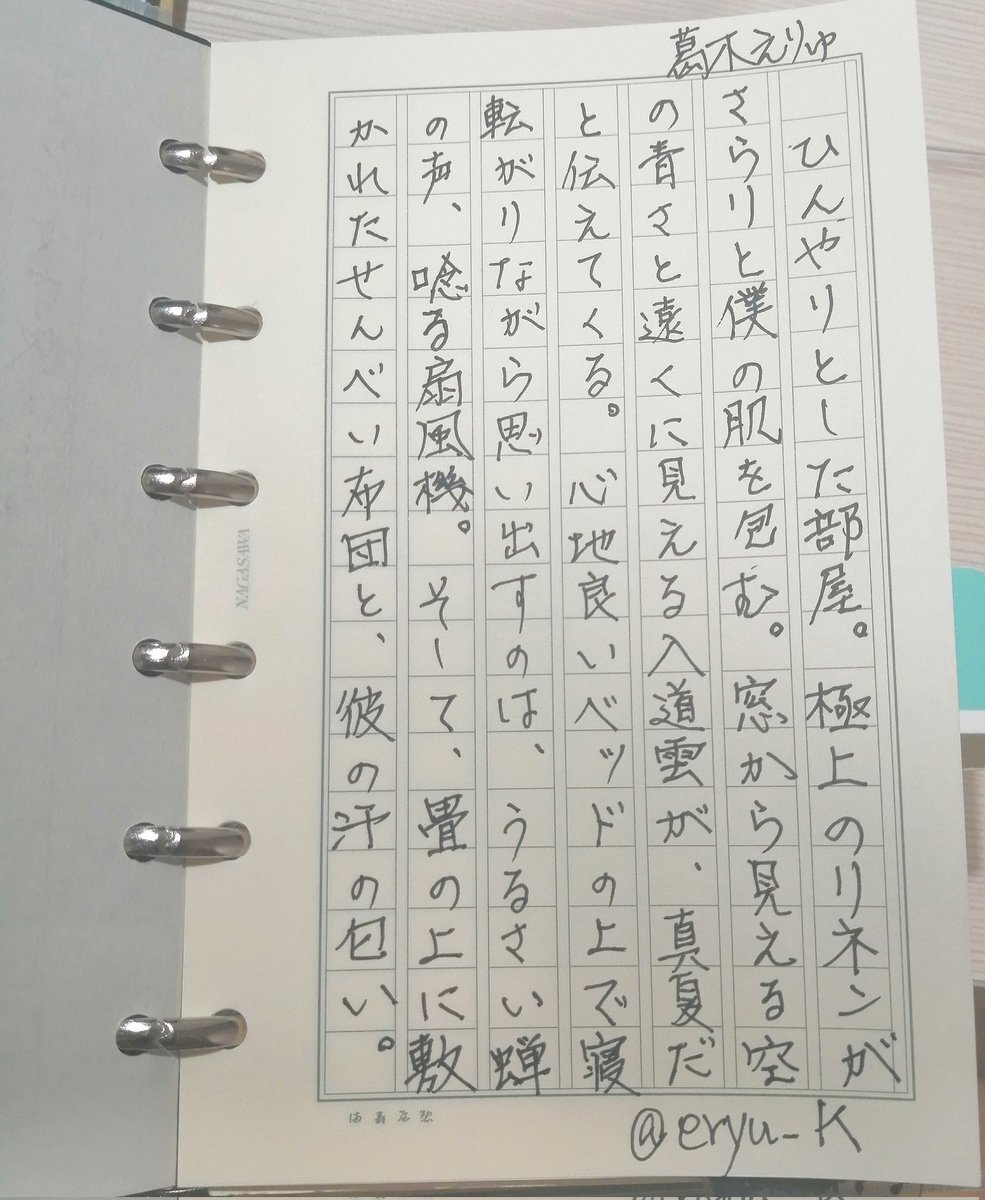 葛木えりゅ
ひんやりとした部屋。極上のリネンが
さらりと僕の肌を包む。窓から見える空
の青さと遠くに見える入道雲が、真夏だ
と伝えてくる。心地良いベッドの上で寝
転がりながら思い出すのは、うるさい蝉
の声、唸る扇風機。そして、畳の上に敷
かれたせんべい布団と、彼の汗の匂い。
@eryu_K
NAGASAWA